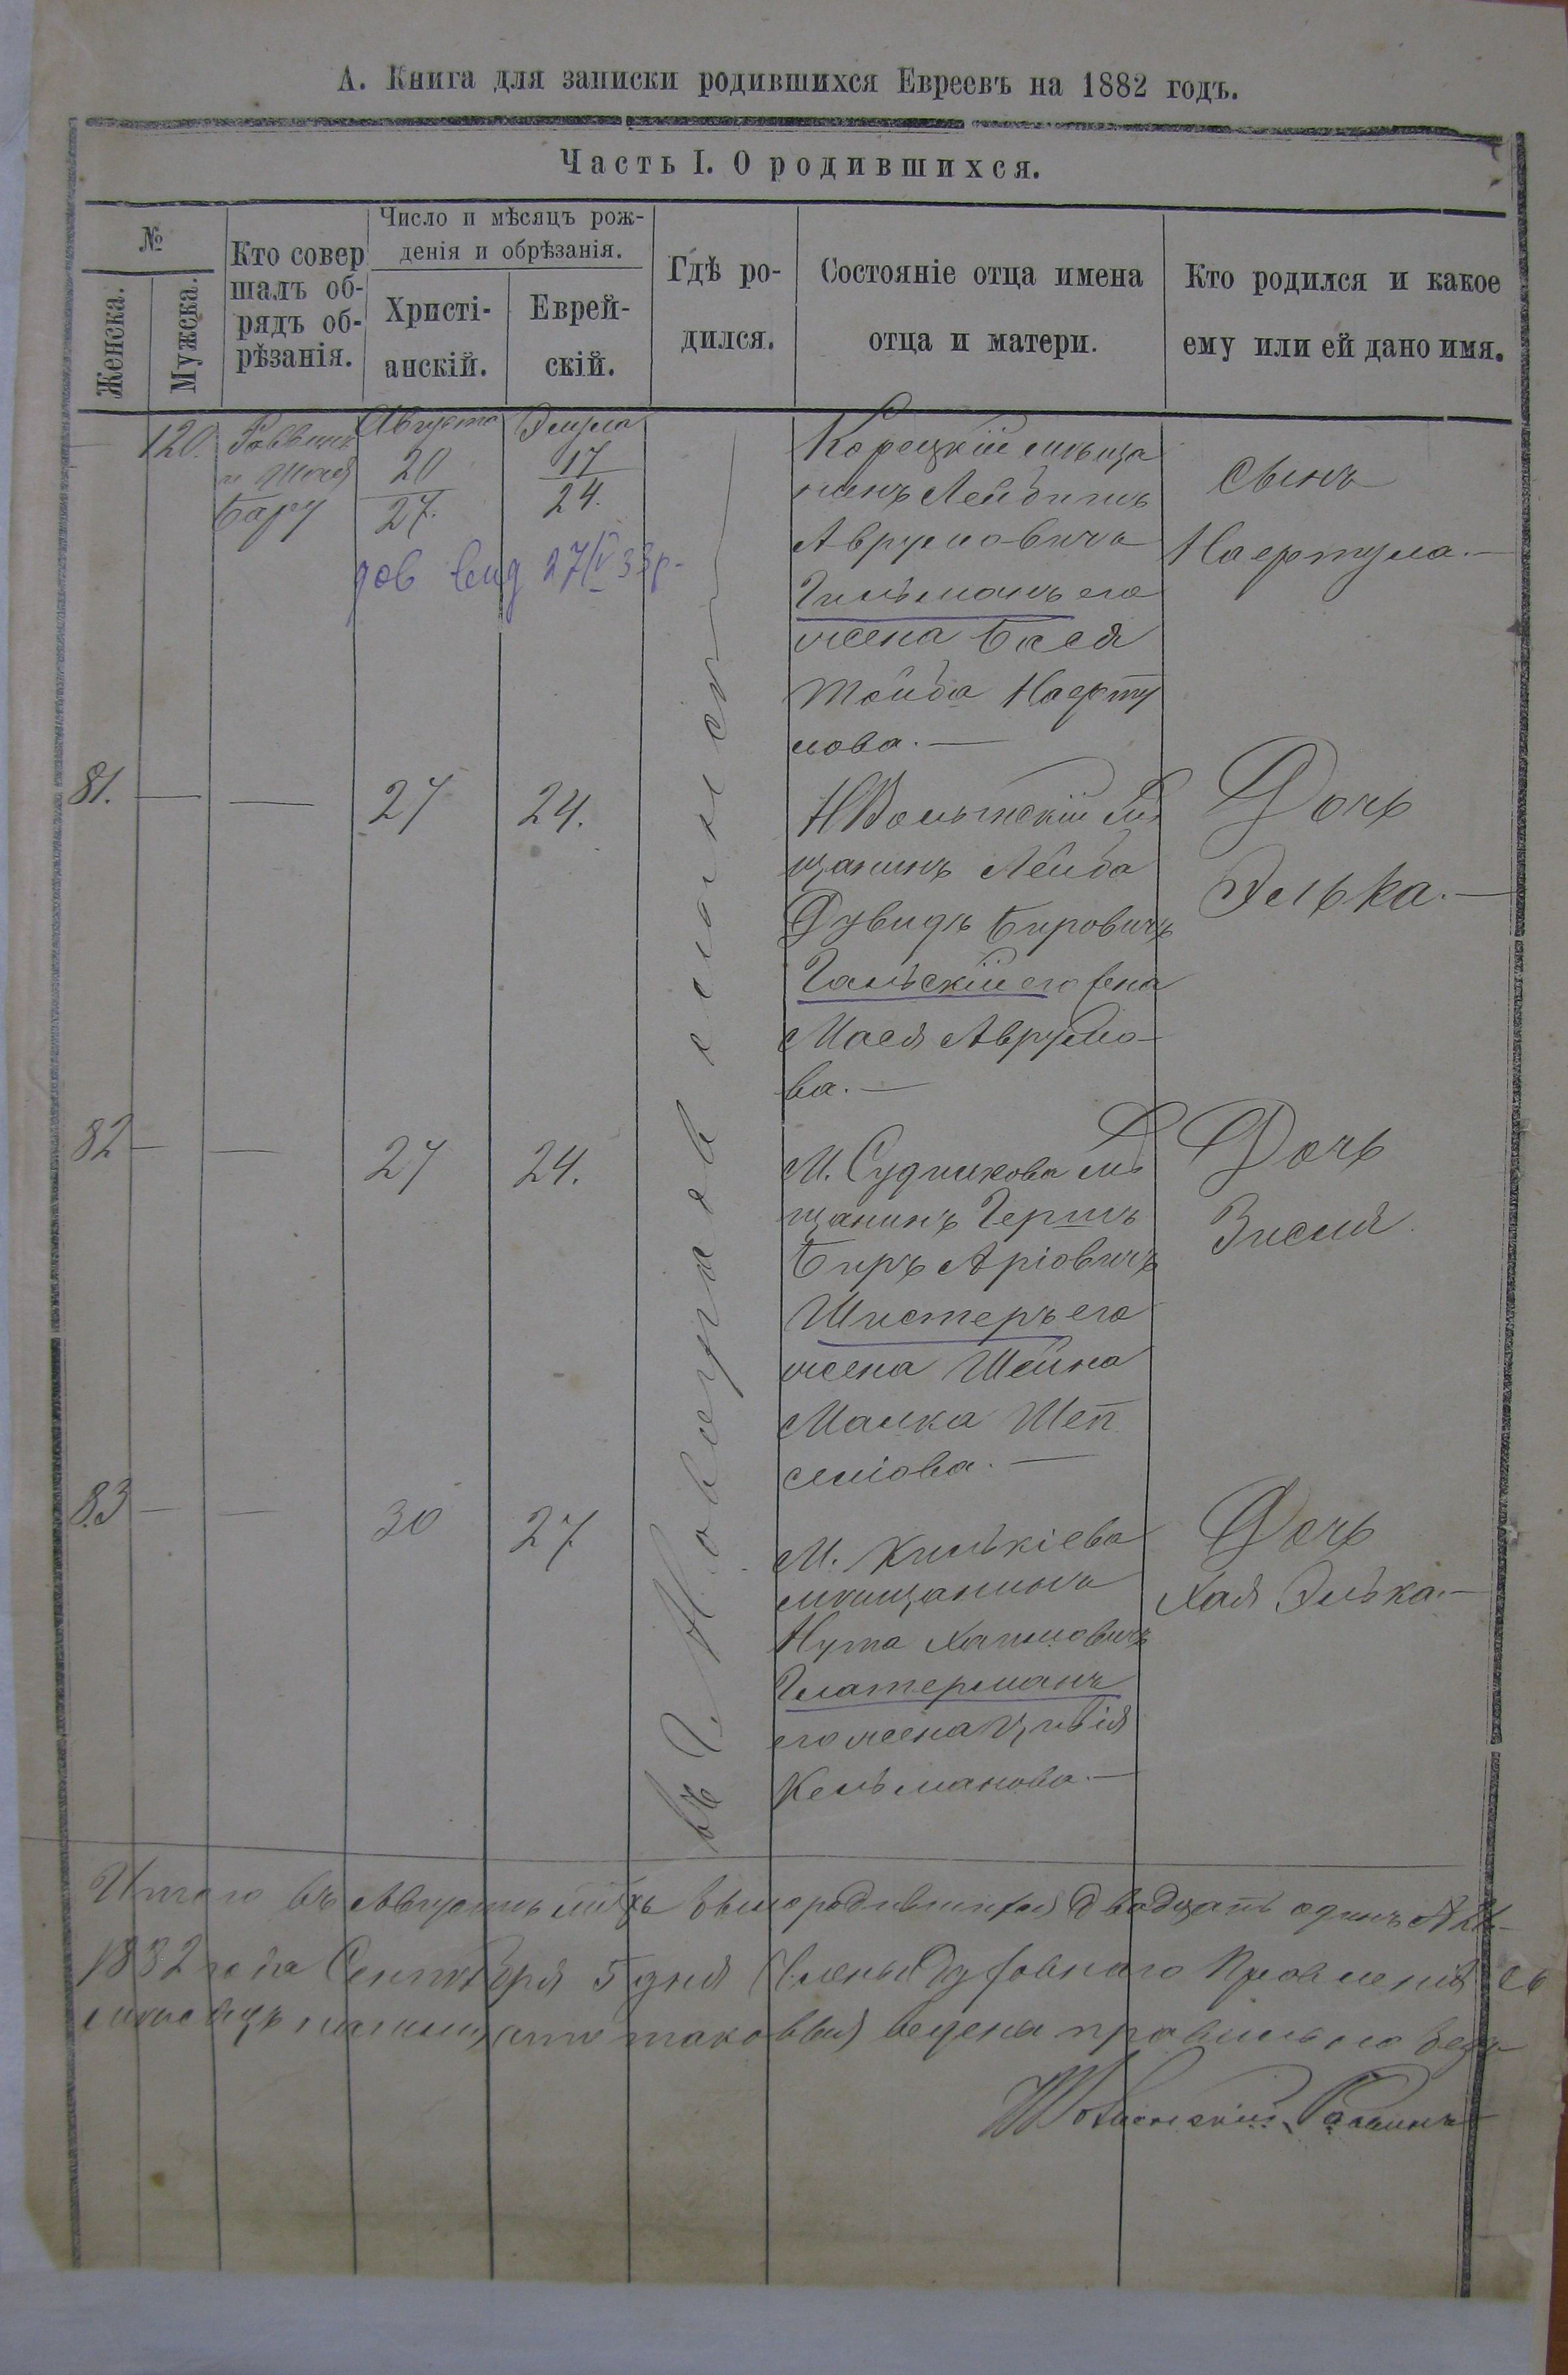 А. Книга для записки родившихся Евреевъ на 1882 годъ.
Часть I. О родившихся.
№
Женска.
Мужска.
Кто совер
шалъ об-
рядъ об-
рѣзанія.
Число и мѣсяцъ рож-
денія и обрѣзанія.
Христі-
анскій.
Еврей-
скій.
Гдѣ ро-
дился.
Состояніе отца имена
отца и матери.
Кто родился и какое
ему или ей дано имя.
120.
Раввинъ
и
Августа
20
27.
Элула
17
24.
Корецкій мѣща
нинъ Лейбишъ
Аврумовичъ
Гильманъ его
жена Бася
Тойба Нафту
лова.—
Сынъ
Нафтула.—
дов вид 27/IV 33р-
въ Г. Новоградволынскѣ
81. —
—
27
24.
НВолынскій мѣ
щанинъ Лейба
Дувидъ Беровичъ
Гальскій его жена
Мася Аврумо-
ва.—
Дочь
Элька.—
82 —
—
27
24.
М. Судилкова мѣ
щанинъ Гершъ
Беръ Аріовичъ
Шистеръ его
жена Шейна
Малка Шеп
селіова.—
Дочь
Зисля
83 —
—
30
27.
М. Килькіева
мѣщанинъ
Нута Хаимовичъ
Глатерманъ
его жена Цивія
Кельманова.—
Дочь
Хая Элька.—
Итого въ Августѣ мѣсяцѣ было родившихся двадцать одинъ
1882 года Сентября 5 дня Члены Духовнаго Правленія съ
что таковыя ведены правильно
Раввинъ